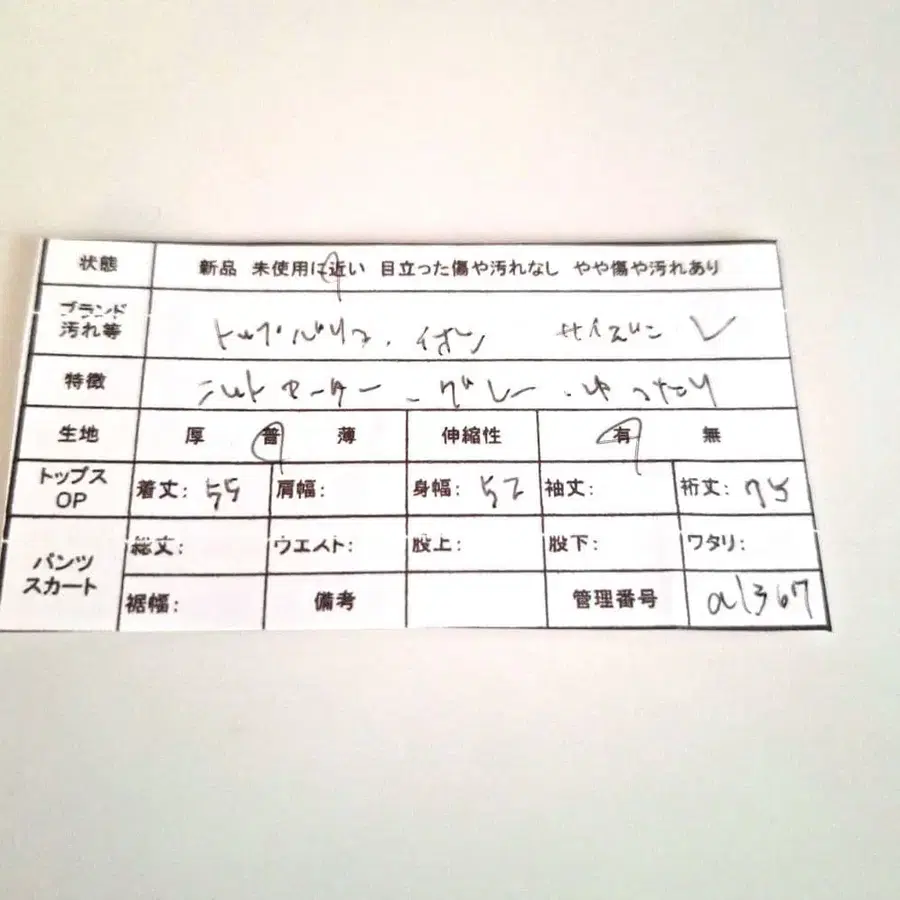 状態 新品 未使用に近い 目立った傷や汚れなし やや傷や汚れあり
ブランド
汚れ等 トップバリュ、イオン L
特徴 ニットセーター、グレー、ゆったり
生地 厚 普 薄 伸縮性 有 無
トップス
OP 着丈: 55 肩幅: 身幅: 52 袖丈: 裄丈: 75
パンツ
スカート 総丈: ウエスト: 股上: 股下: ワタリ:
裾幅: 備考 管理番号 al367